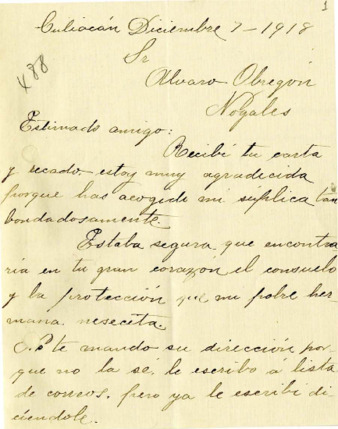 1
Culiacán Diciembre 7-1918
488
Sr
Alvaro Obregón
Nogales
Estimado amigo:
Recibí tu carta
y recado - estoy muy agradecida
porque has acogido mi súplica tan
bondadosamente
Estaba segura que encontra
ría en tu gran corazón el consuelo
y la protección que mi pobre her
mana neseceta.
te mando su dirección por
que no la sé, le escribo a lista
de correos, pero ya le escribí di
ciéndole.